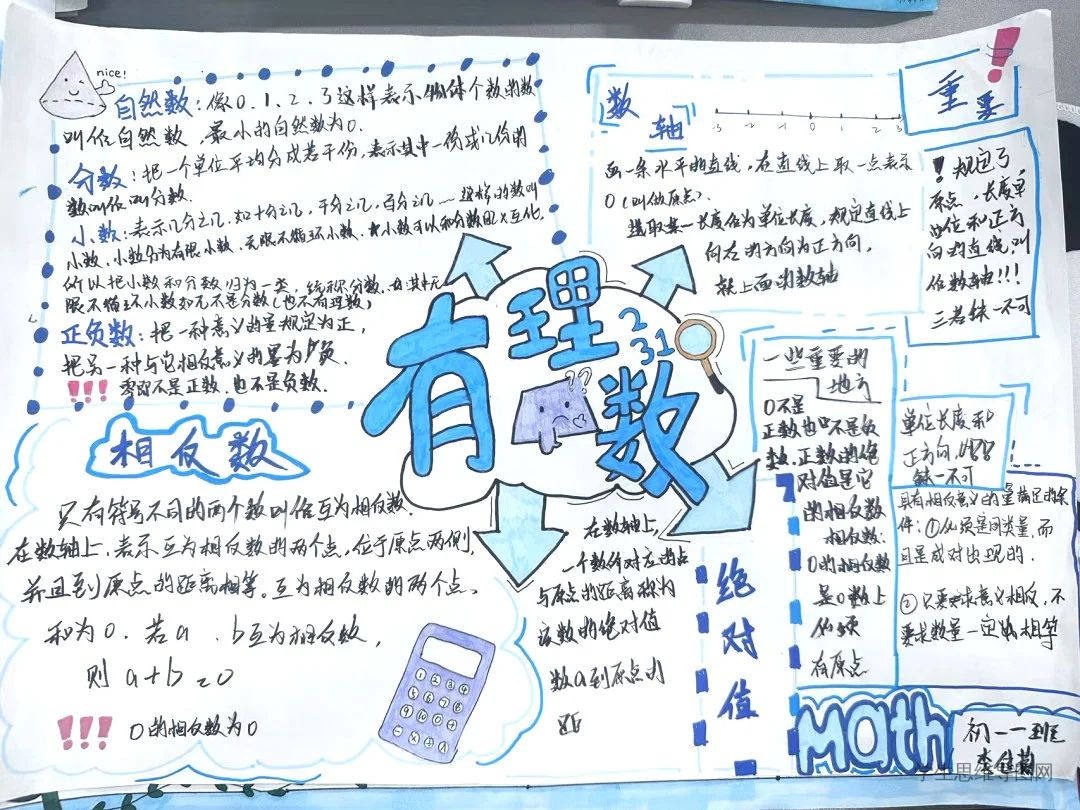 nice!
自然数：像0、1、2、3这样表示物体个数的数
叫做自然数，最小的自然数为0.
分数：把一个单位平均分成若干份，表示其中一份或几份的
数叫做叫分数.
小数：表示几分之几，如十分之几，千分之几，百分之几……这样的数叫
小数、小数分为有限小数、无限不循环小数.小数可以和分数因义互化,
所以把小数和分数归为一类，统称分数.
限不循环小数如π不是分数（也不有理数）
正负数：把一种意义的量规定为正，
把另一种与它相反意义的量为负.
!!! 零即不是正数，也不是负数.
有理数
2
31
??
数轴
-3 -2 -1 0 1 2 3
画一条水平的直线，在直线上取一点表示
0（叫做原点）
选取某一长度作为单位长度，规定直线上
向右的方向为正方向，
就上面的数轴
重要
!
! 规定了
原点，长度单
位和正方
向的直线，叫
做数轴!!!
三者缺一不可
一些重要的
地方
0不是
正数也不是负
数.正数的绝
对值是它
的相反数
相反数:
0的相反数
是0数上
在原点
单位长度和
正方向,
缺一不可
具有相反意义的量满足的条
件：①必须是同类量,而
且是成对出现的.
②只要求意义相反，不
要求数量一定相等
相反数
只有符号不同的两个数叫做互为相反数.
在数轴上，表示互为相反数的两个点，位于原点两侧，
并且到原点的距离相等。互为相反数的两个点。
和为0.若a、b互为相反数，
则a+b=0
!!! 0的相反数为0
在数轴上，
一个数所对应的点
与原点的距离称为
该数的绝对值
数a到原点的
距
绝对值
Math
初一一班
学生思维导图网